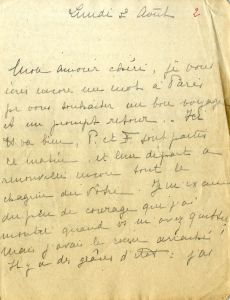 Lundi 2 Août 2
Mon amour chéri, je vous
écris encore un mot à Paris
pr vous souhaiter un bon voyage
et un prompt retour. Ici
tt va bien, P. et F sont partis
ce matin, et leur départ a
renouvelé encore tout le
chagrin du vôtre. Je m'excuse
du peu de courage que j'ai
montré quand vs m'avez quittée
mais j'avais le coeur arraché!
Il y a des grèves d' : j'ai